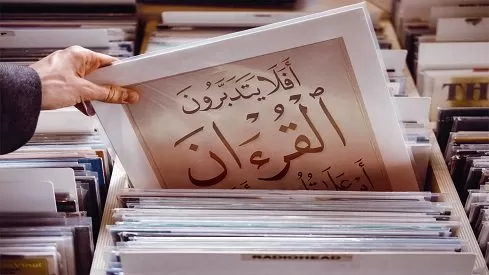 أَفَلَا يَتَدَبَّرُونَ
الْقُرْءَانَ
أَمْ عَلَىٰ
TH
RADIOHEAD